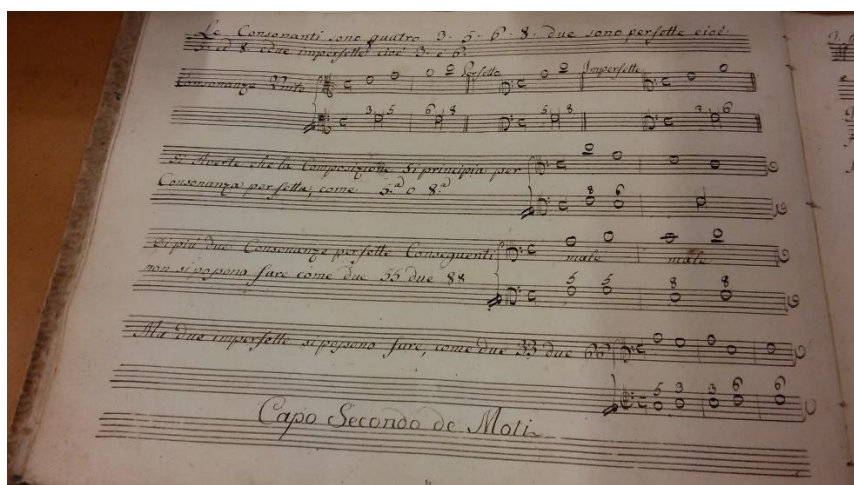 Le Consonanti sono quatro 3. 5. 6. 8. due sono perfette cioè
5. ed 8. e due imperfette cioè 3. e 6.
Consonanze Unite
Perfette
Imperfette
3 5 6 8 5 8 3 6
Si Averte che la Composizione si principia per
Consonanza perfetta, come 5.a o 8.a
8 6
Di più due Consonanze perfette Conseguenti
male male
non si possono fare come due 55 due 88
5 5 8 8
Ma due imperfette si possono fare, come due 33 due 66
5 3 3 6 6
Capo Secondo de Moti